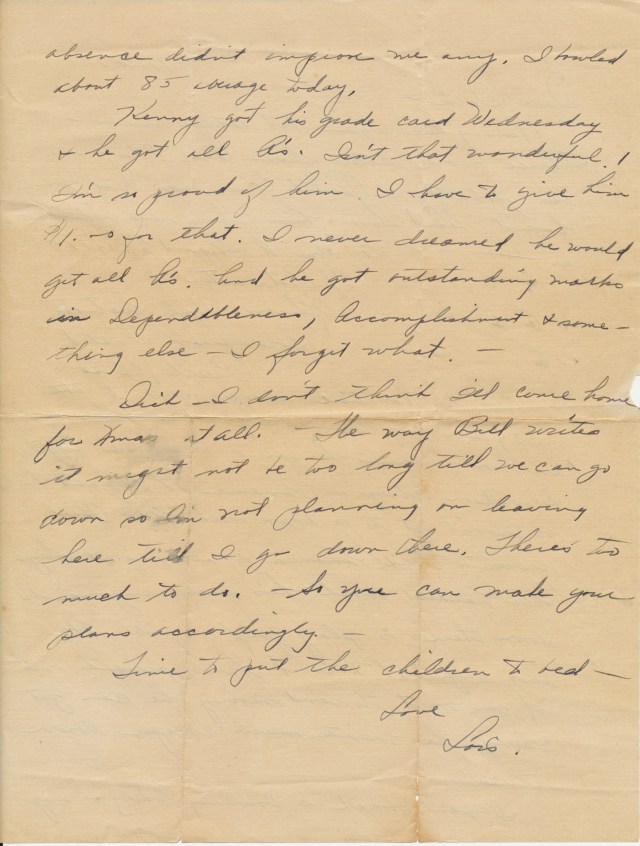 absence didn't improve me any. I bowled
about 85 average today.
Kenny got his grade card Wednesday
+ he got all A's. Isn't that wonderful!
I'm so proud of him. I have to give him
$1. for that. I never dreamed he would
get all A's. And he got outstanding marks
in Dependableness, Accomplishment + some-
thing else – I forget what. –
Dick – I don't think I'll come home
for Xmas at all. – The way Bill writes
it might not be too long till we can go
down so I'm not planning on leaving
here till I go down there. There's to
much to do. – So you can make your
plans accordingly. –
Time to put the children to bed –
Love
Lois.